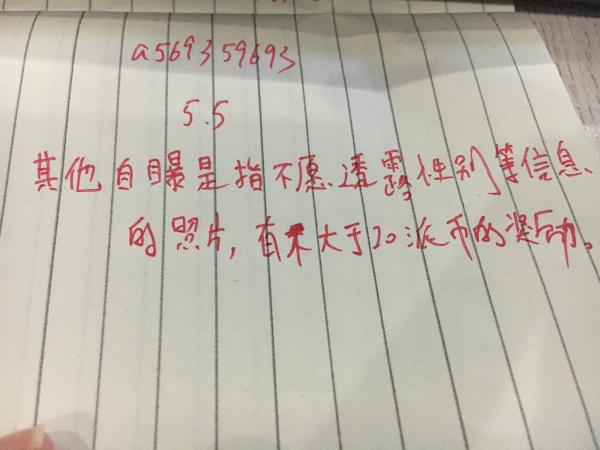 a569359693
5.5
其他自曝是指不愿透露性别等信息
的照片,有不大于20派币的奖励。